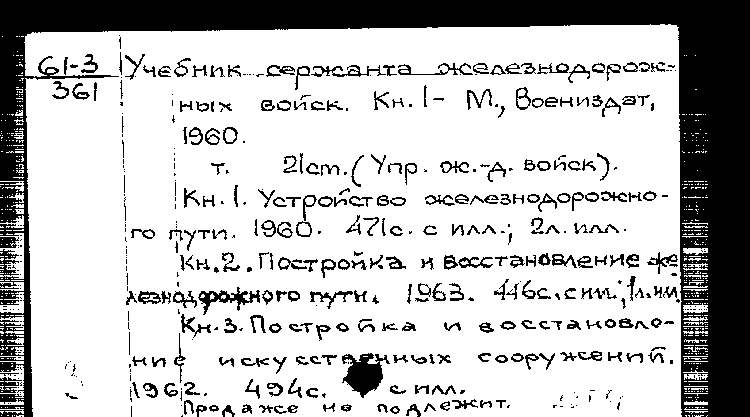 61-3
361
Учебник сержанта железнодорож-
ных войск. Кн. 1- М., Воениздат,
1960.
т. 21cm. (Упр. ж.-д. войск).
Кн. 1. Устройство железнодорожно-
го пути. 1960. 471с. с илл.; 2л. илл.
Кн. 2. Постройка и восстановление же
лезнодорожного пути. 1963. 446с. с илл.; 1л. илл
Кн. 3. Постройка и восстановле-
ние искусственных сооружений.
1962. 494с. с илл.
Продаже не подлежит.
3